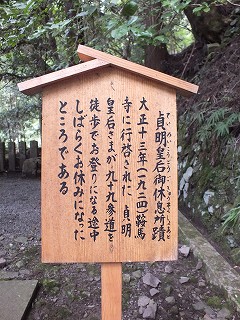 貞明皇后御休息所蹟
大正十三年(一九二四)鞍馬
寺に行啓された 貞明
皇后さまが九十九参道を
徒歩でお登りになる途中
しばらくお休みになった
ところである